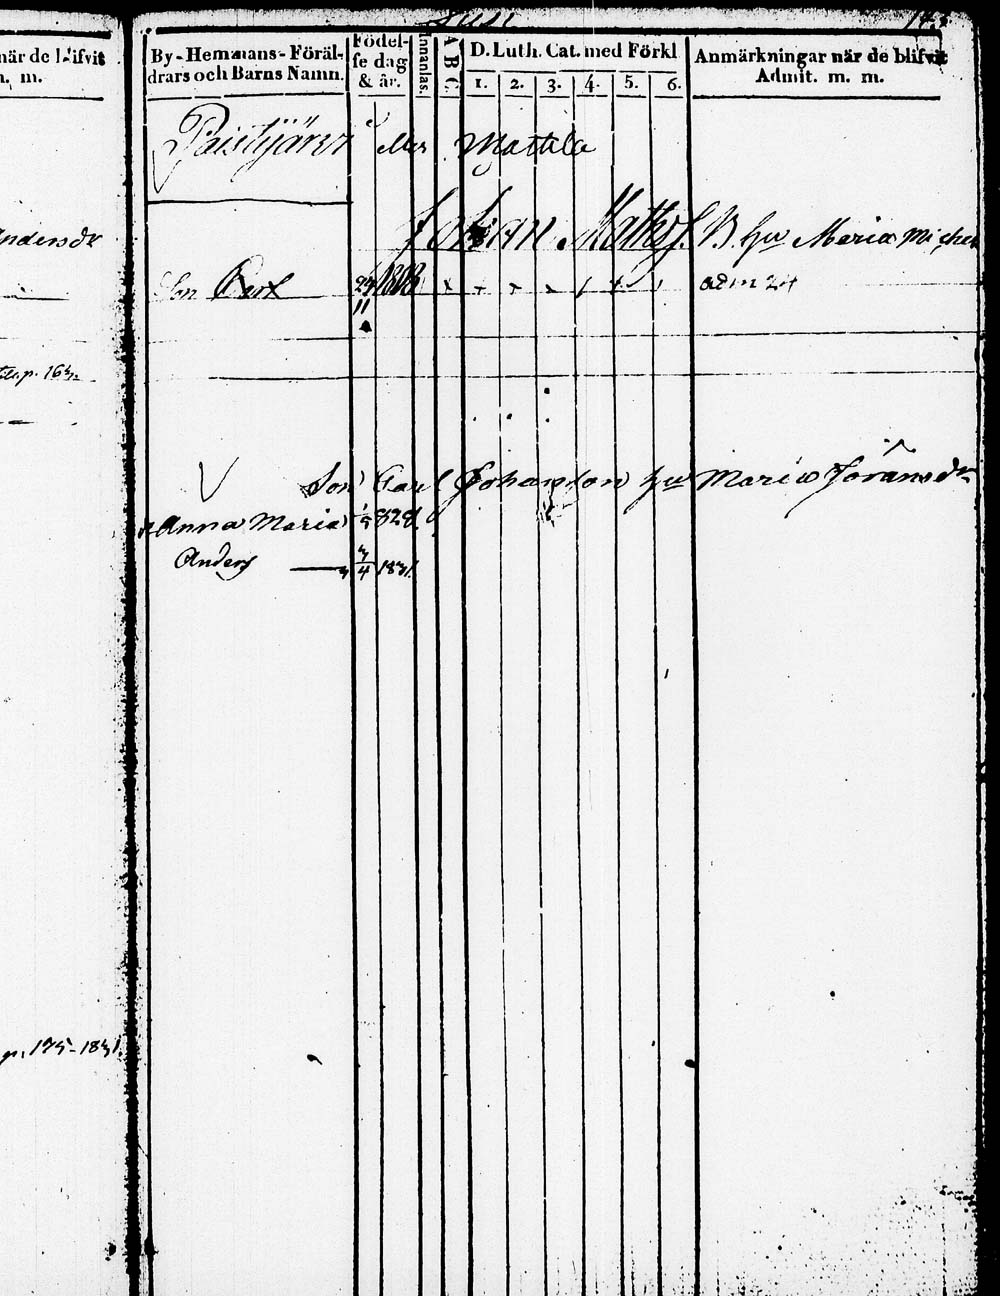 när de blifvit
m. m.
Andersdr
p. 175-1831.
By-Hemmans-Föräl-
drars och Barns Namn.
Födel-
se dag
& år.
Innanläs.
A B C
D. Luth. Cat. med Förkl
1. 2. 3. 4. 5. 6.
Anmärkningar när de blifvit
Admit. m. m.
Paistjärvi Mattila
Johan Matts. B hu Maria Michels
Son Carl 24/11 1808 x + x x / + / adm 24
Son Carl Johansson hu Maria Jöransdr
Anna Maria 1/5 828
Anders 3/4 1831